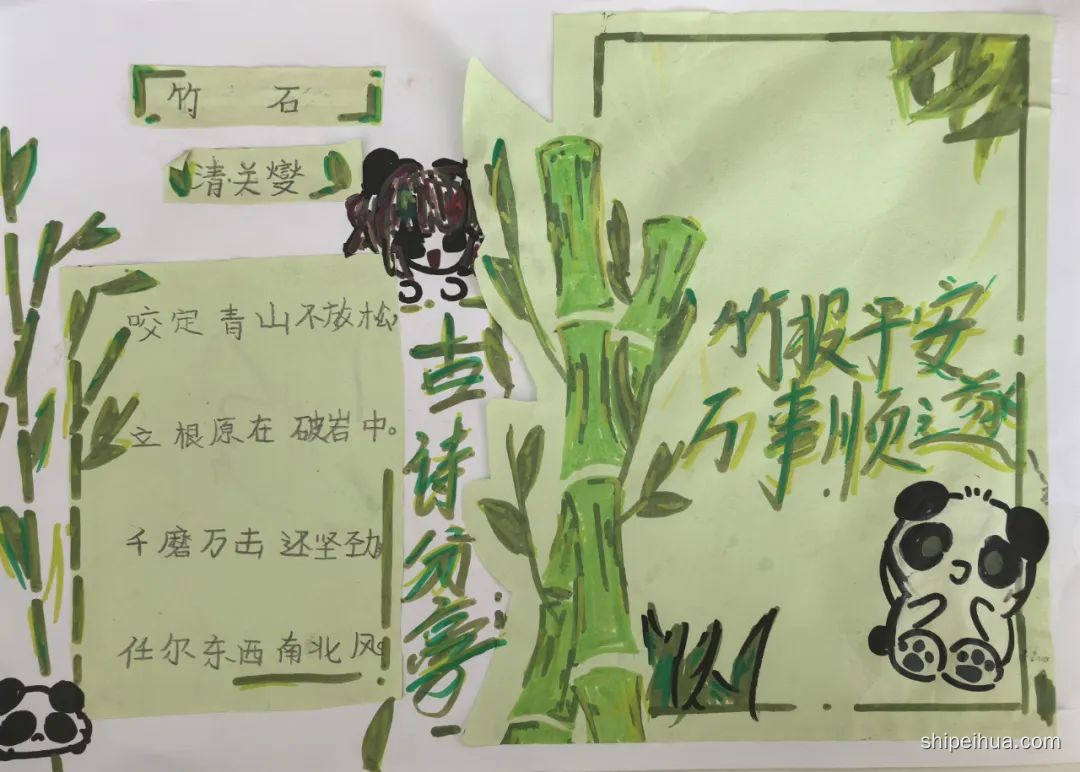 竹 石
清关燮
咬定青山不放松,
立根原在破岩中。
千磨万击还坚劲
任尔东西南北风。
古诗分享
竹报平安
万事顺遂
shipeihua.com